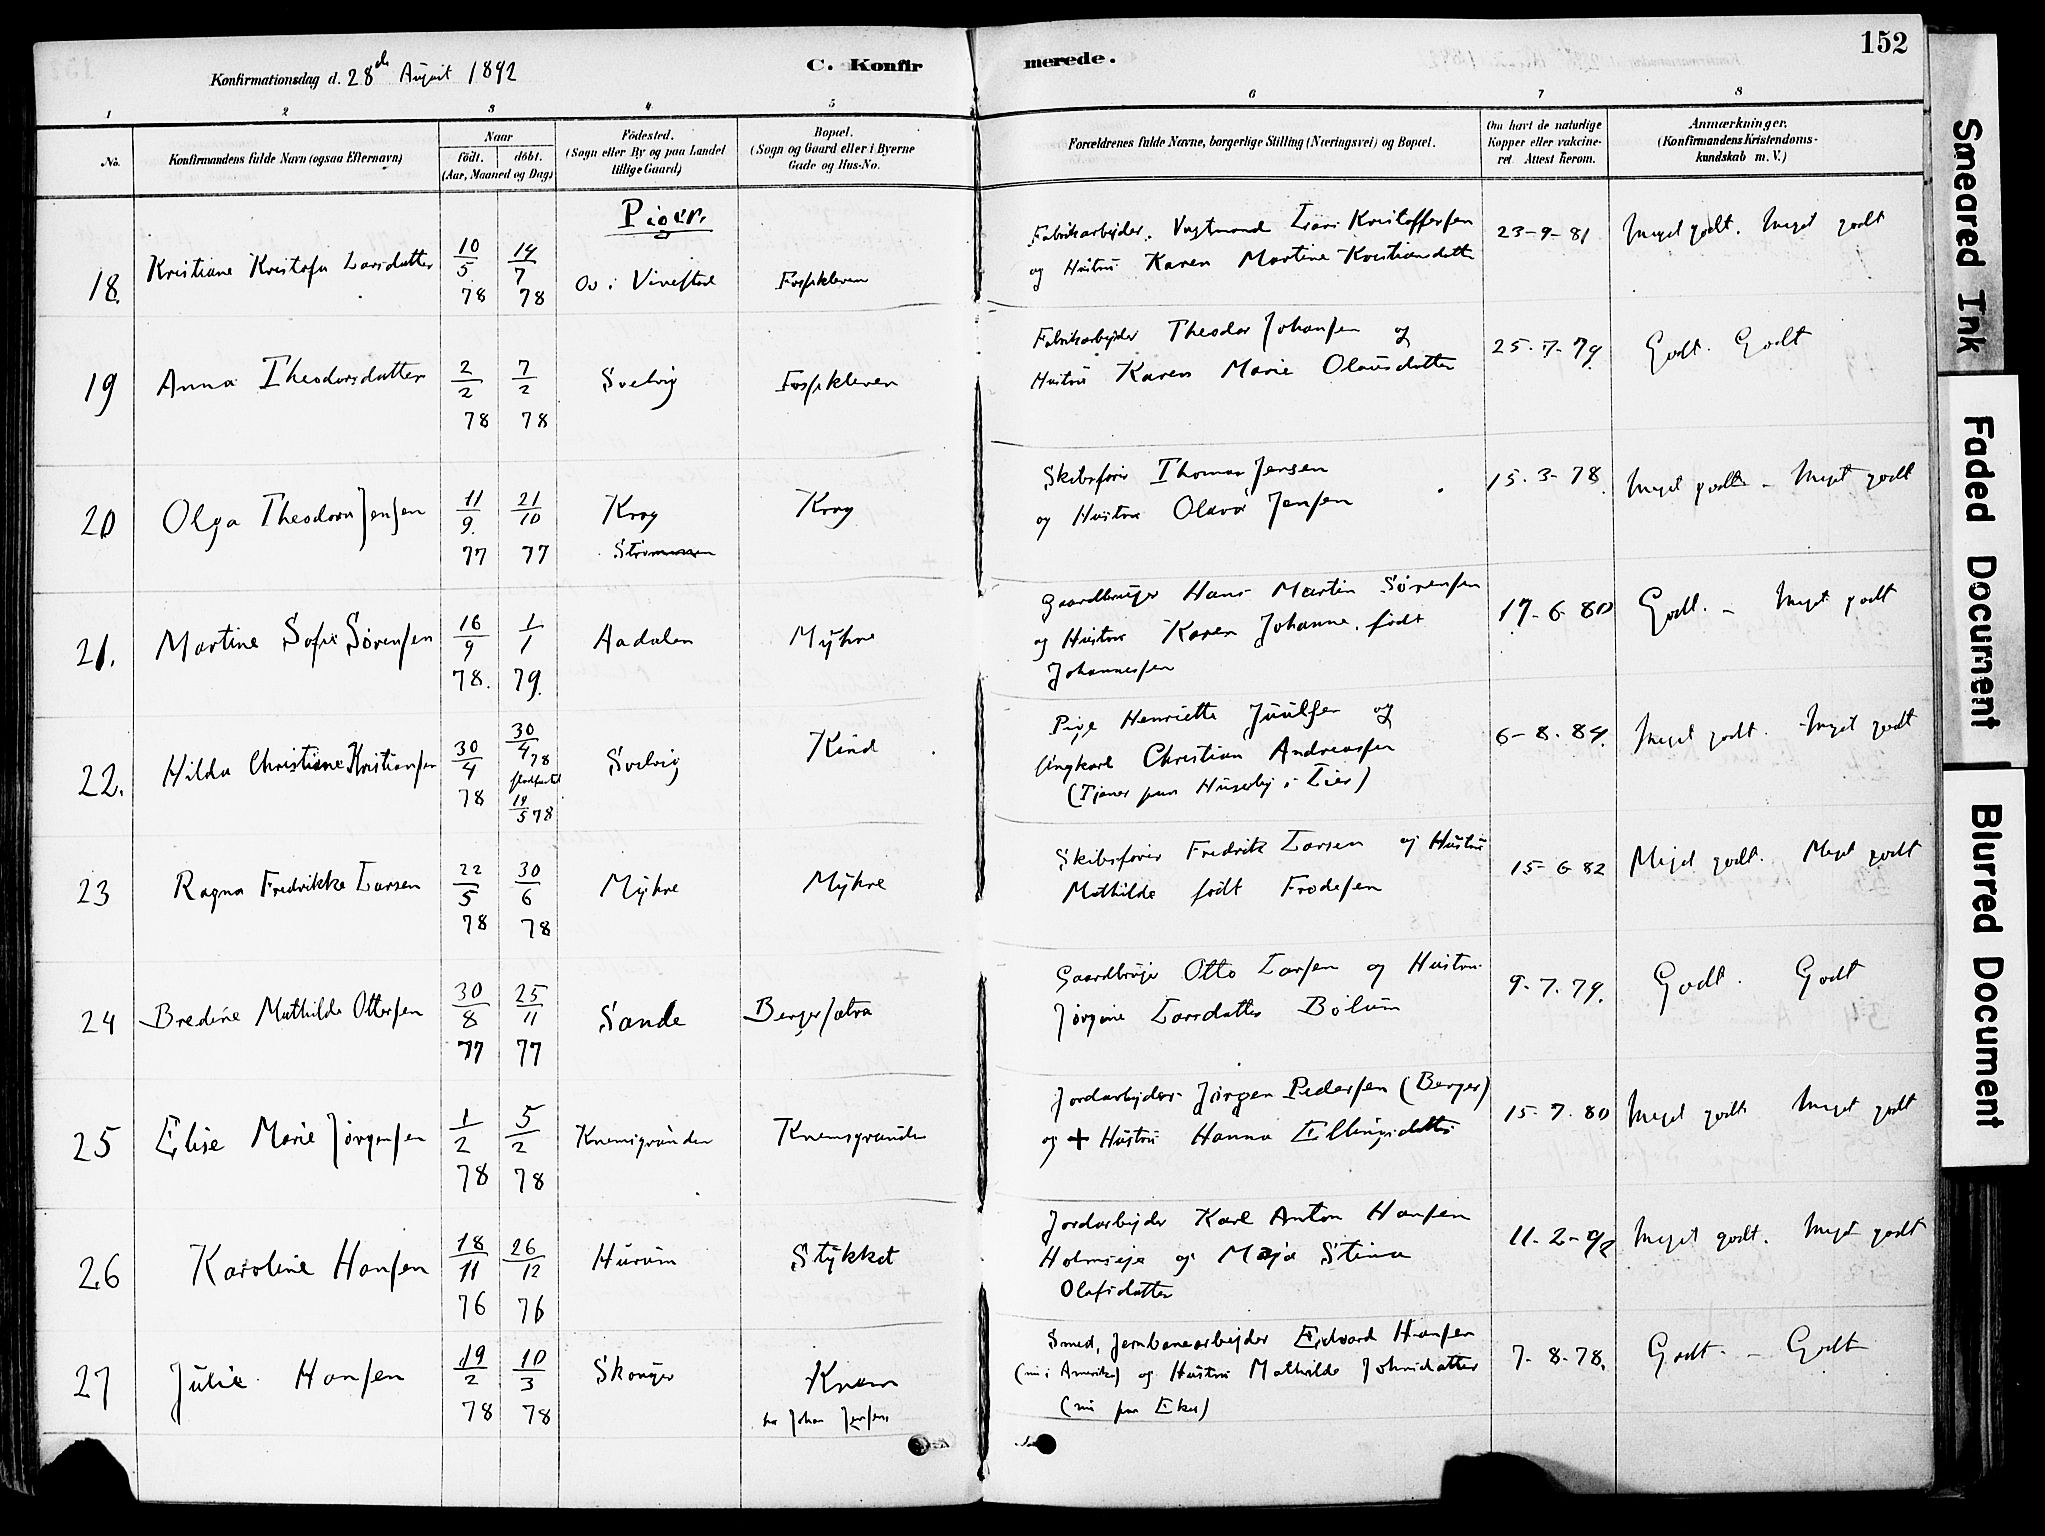 152
Konfirmationsdag d. 28de August 1892
C. Konfirmerede.
1 2 3 4 5 6 7 8
No. Konfirmandens fulde Navn (ogsaa Efternavn) Naar født. døbt. (Aar, Maaned og Dag) Fødested. (Sogn eller By og paa Landet tillige Gaard) Bopæl. (Sogn og Gaard eller i Byerne Gade og Hus-No. Forældrenes fulde Navne, borgerlige Stilling (Næringsvei) og Bopæl. Om havt de naturlige Kopper eller vakcineret. Attest herom. Anmærkninger. (Konfirmandens Kristendomskundskab m. V.)
Piger.
18. Kristiane Kristofa Larsdatter 10/5 78 14/7 78 Fossekleven
Fabrikarbeider, Lars Kristoffersen
og Hustru Karen Martine Kristiansdatter
23-9-81 Meget godt. Meget godt
19 Anna Theodorsdatter 2/2 78 7/2 78 Svelvig Fossekleven
Fabrikarbeider Theodor Johansen og
Hustru Karen Marie Olausdatter
25-7-79. Godt. Godt
20 Olga Theodora Jensen 11/9 77 21/10 77 Krog Strømmen Krog
Skibsfører Thomas Jensen
og Hustru Olava Jensen
15-3-78. Meget godt - Meget godt
21. Martine Sofie Sørensen 16/9 78. 1/1 79. Aadalen Myhre
Gaardbruger Hans Martin Sørensen
og Hustru Karen Johanne, født
Johannessen
17-6-80 Godt. - Meget godt
22. Hilda Christiane Kristiansen 30/4 78 30/4 78 stadfæstet 19/5 78 Svelvig Kind
Pige Henriette Juulsen og
Ungkarl Christian Andreassen
(Tjener paa Huseby i Lier)
6-8-84. Meget godt. Meget godt
23 Ragna Fredrikke Larsen 22/5 78 30/6 78 Myhre Myhre
Skibsfører Fredrik Larsen og Hustru
Mathilde født Frodesen
15-6-82 Meget godt. Meget godt
24 Bredine Mathilde Ottersen 30/8 77 25/11 77 Sande Bergersætra
Gaardbruger Otto Larsen og Hustru
Jørgine Larsdatter Bølum
9-7-79. Godt. Godt
25 Elise Marie Jørgensen 1/2 78 5/2 78 Knemsgrunden Knemsgrunden
Jordarbeider Jørgen Pedersen (Berger)
og + Hustru Hanna Ellingsdatter
15-7-80 Meget godt Meget godt
26 Karoline Hansen 18/11 76 26/12 76 Hurum Stykket
Jordarbeider Karl Anton Hansen
Holmseje og Maja Stina
Olafsdatter
11-2-92 Meget godt. Meget godt
27 Julie Hansen 19/2 78 10/3 78 Skouger Knem
hos Johan Jensen
Smed, Jernbanearbeider Edvard Hansen
(nu i Amerika) og Hustru Mathilde Johnsdatter
(nu paa Eker)
7-8-78. Godt - Godt
Smeared Ink
Faded Document
Blurred Document